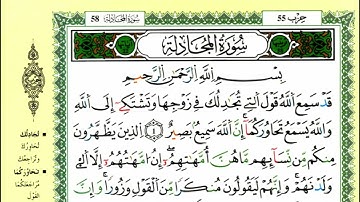 سُورَةُ المُجَادلَة 58
حِزْب 55
سُورَةُ المُجَادلَة
بِسْمِ اللَّهِ الرَّحْمَنِ الرَّحِيمِ
قَدْ سَمِعَ اللَّهُ قَوْلَ الَّتِي تُجَدِلُكَ فِي زَوْجِهَا وَتَشْتَكِي إِلَى اللَّهِ
وَاللَّهُ يَسْمَعُ تَحَاوُرَكُمَا إِنَّ اللَّهَ سَمِيعٌ بَصِيرٌ ١ الَّذِينَ يَظَّهَّرُونَ
مِنكُم مِّن نِّسَآئِهِم مَّا هُنَّ أُمَّهَتِهِمْ إِنْ أُمَّهَتُهُمْ إِلَّا الَّـِٔ
وَلَدْنَهُمْ وَإِنَّهُمْ لَيَقُولُونَ مُنكَرًا مِّنَ الْقَوْلِ وَزُورًا وَإِنَّ
تجادلك
تحاوركما
القول